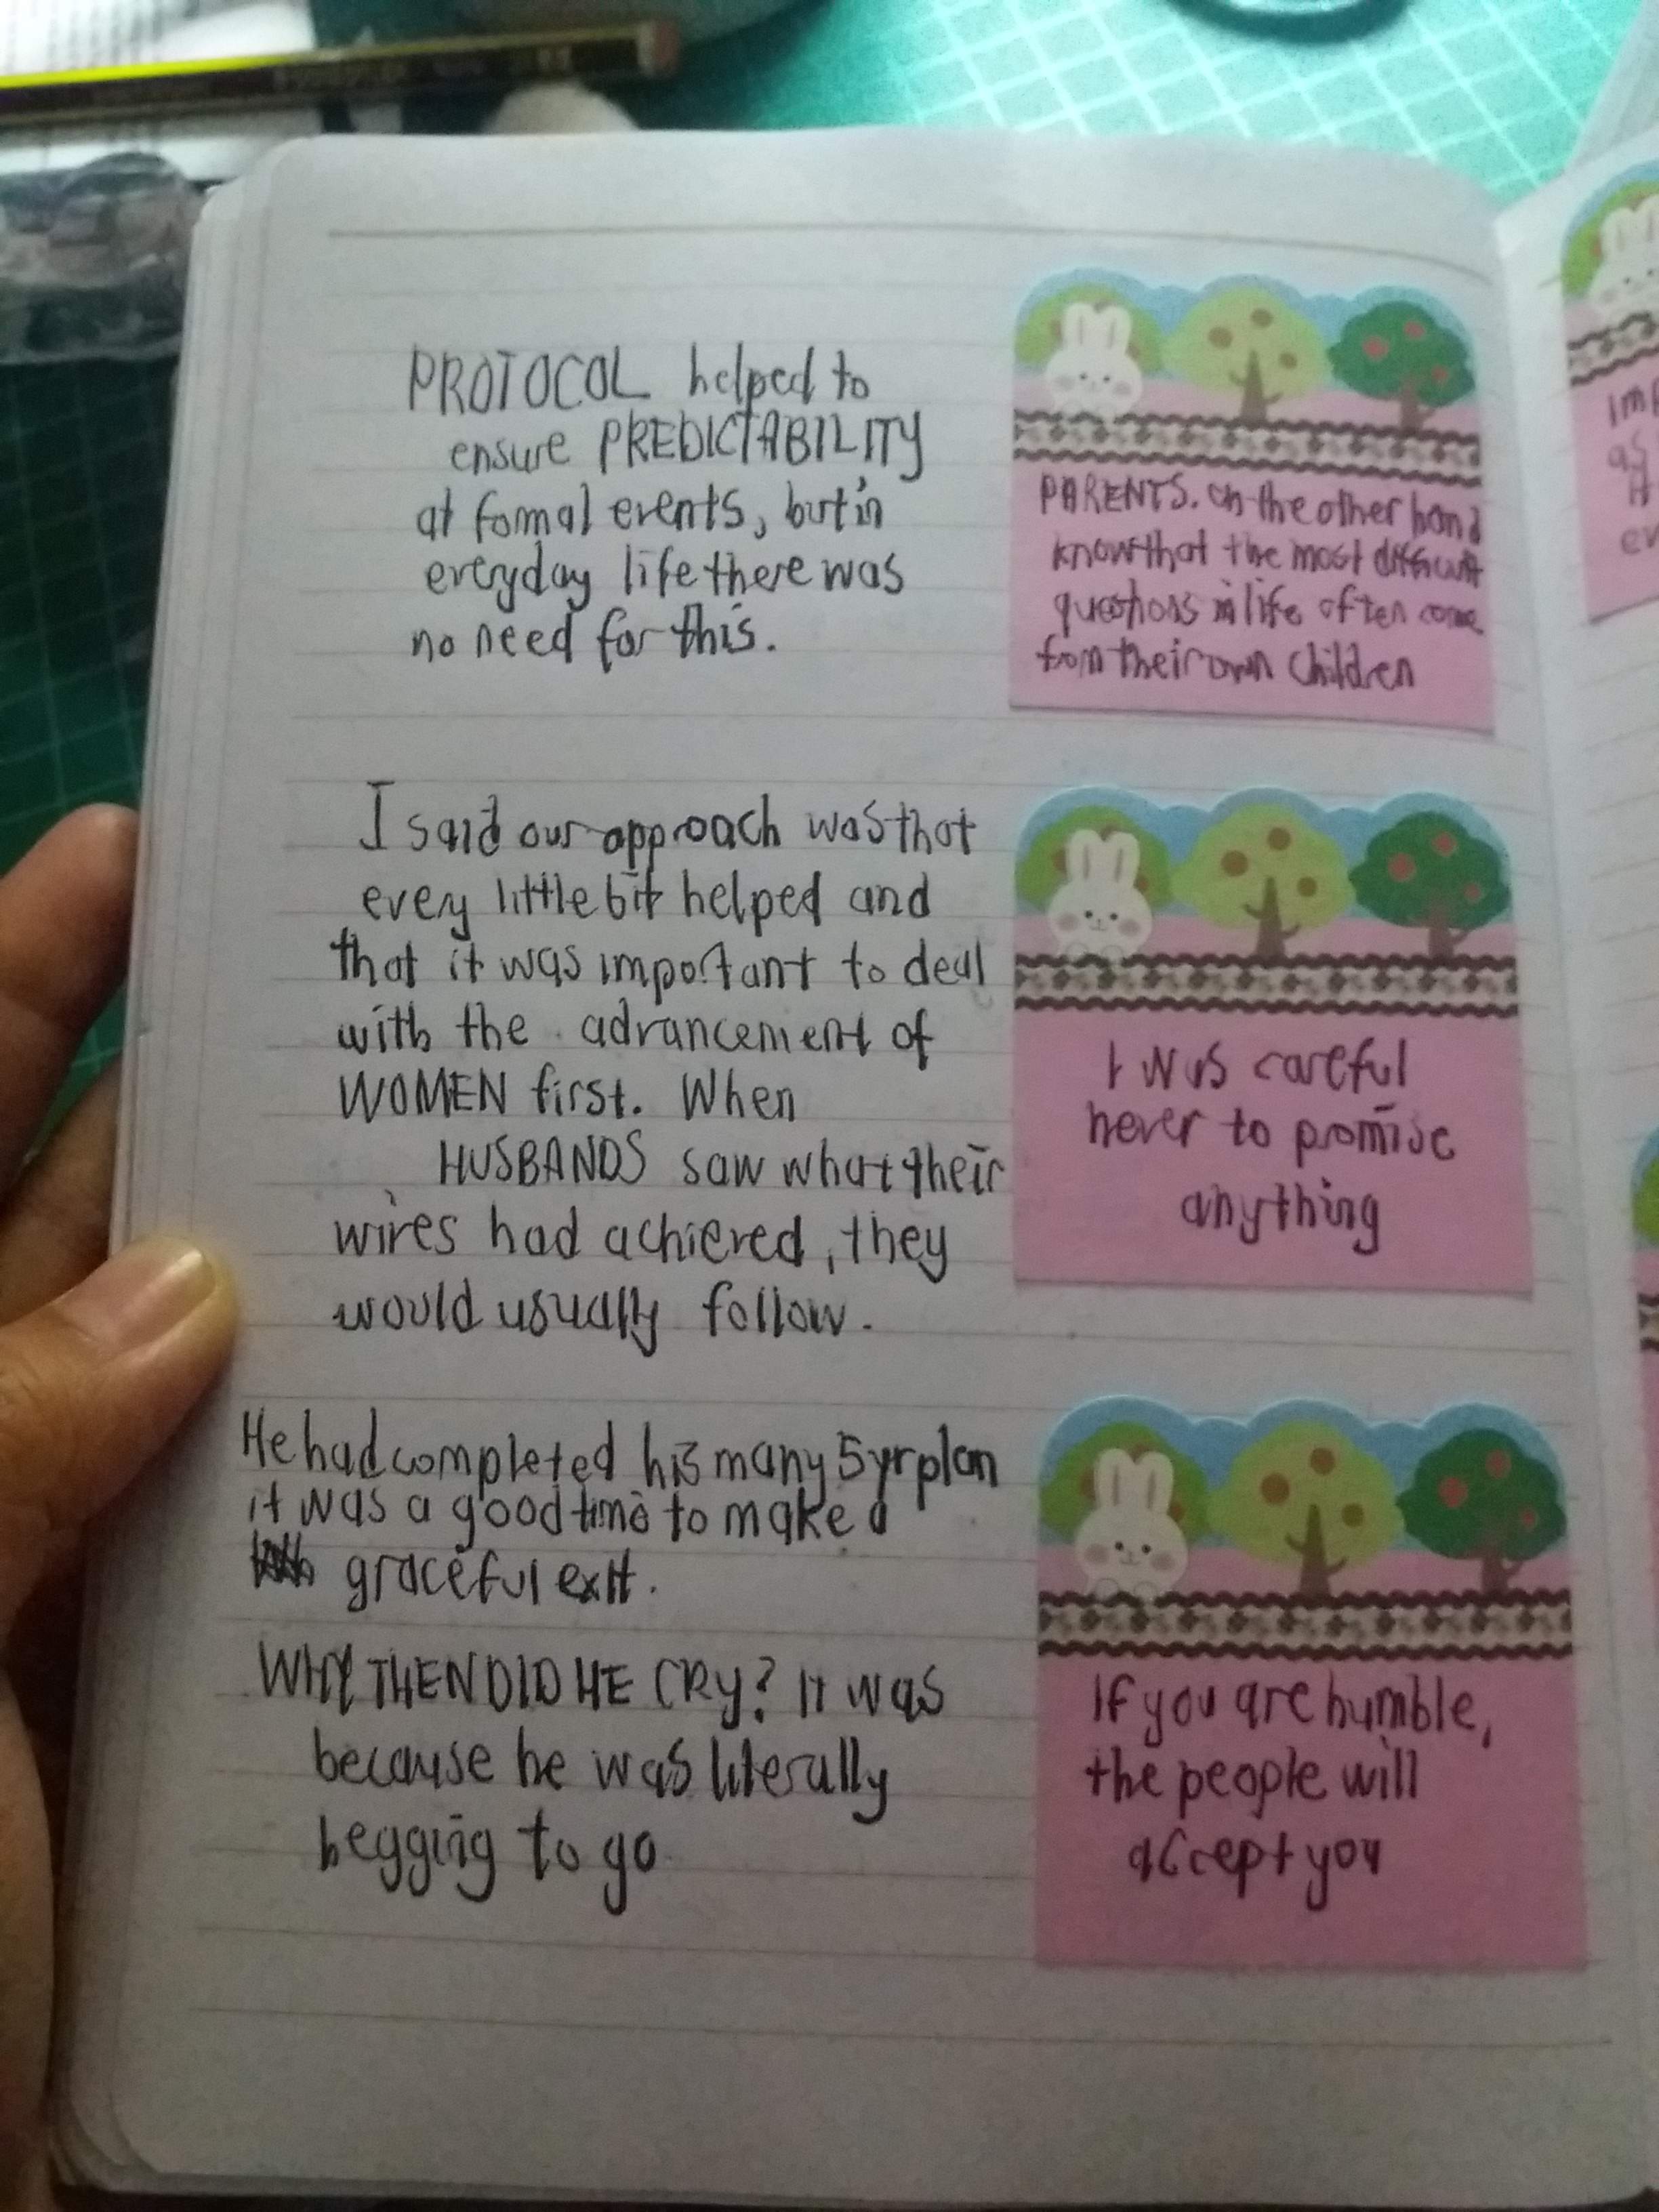 PROTOCOL helped to
ensure PREDICTABILITY
at formal events, but in
everyday life there was
no need for this.
PARENTS. on the other hand
know that the most difficult
questions in life often come
from their own children
I said our approach was that
every little bit helped and
that it was important to deal
with the advancement of
WOMEN first. When
HUSBANDS saw what their
wives had achieved, they
would usually follow.
I was careful
never to promise
anything
He had completed his many 5 yr plan
it was a good time to make a
graceful exit.
WHY THEN DID HE CRY? It was
because he was literally
begging to go
If you are humble,
the people will
accept you
as